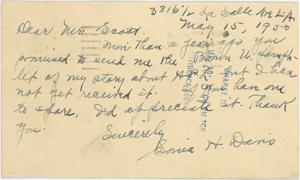 3816½ La Salle Ave L.A.
May 15, 1950
Dear Mrs. Scott,
more than a year ago you
promised to send me the
of my story about but I have
not yet received it. than one
to spare, I'd appreciate it. Thank
you.
Sincerely
Sonia H. Davis